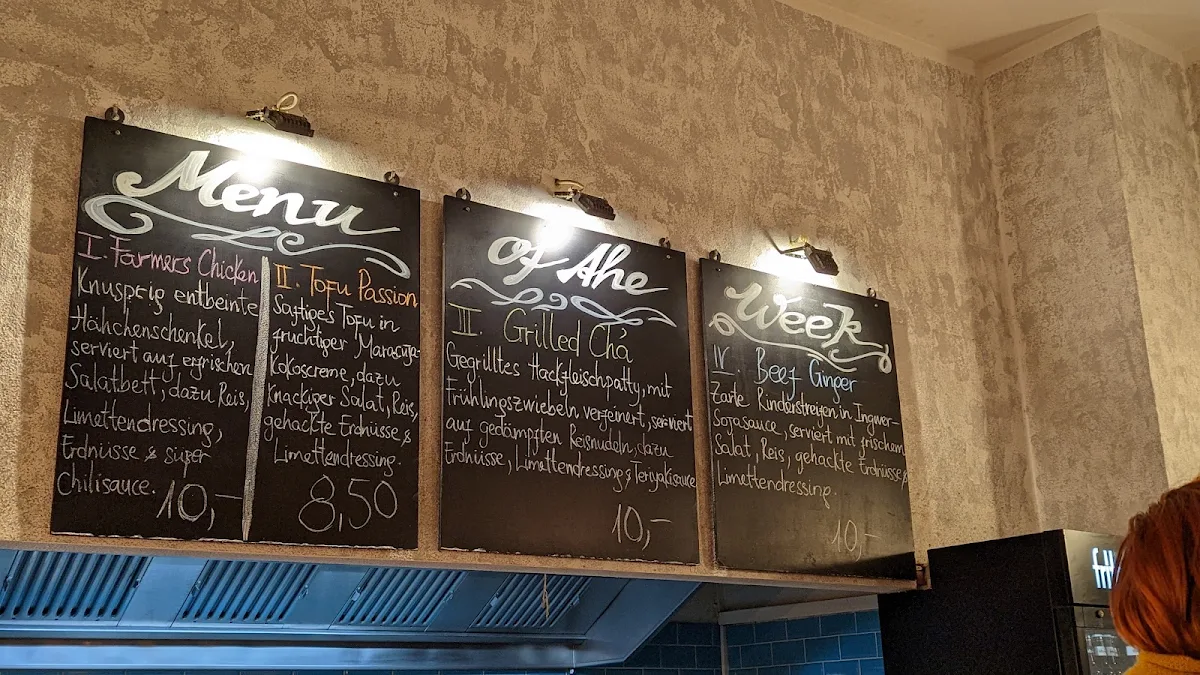 Menu
I. Farmers Chicken
Knusprig entbeinte
Hähchenschenkel,
serviert auf erfrischen
Salatbett, dazu Reis,
Limettendressing,
Erdnüsse & süßer
Chilisauce. 10,-
II. Tofu Passion
Saftiges Tofu in
fruchtiger Maracuja-
Kokoscreme, dazu
knackiger Salat, Reis,
gehackte Erdnüsse &
Limettendressing.
8,50
of the
III. Grilled Chả
Gegrilltes Hackfleischpatty, mit
Frühlingszwiebeln verfeinert, serviert
auf gedämpften Reisnudeln, dazu
Erdnüsse, Limettendressing & Teriyakisauce
10,-
Week
IV. Beef Ginger
Zarte Rinderstreifen in Ingwer-
Sojasauce, serviert mit frischem
Salat, Reis, gehackte Erdnüsse &
Limettendressing.
10,-